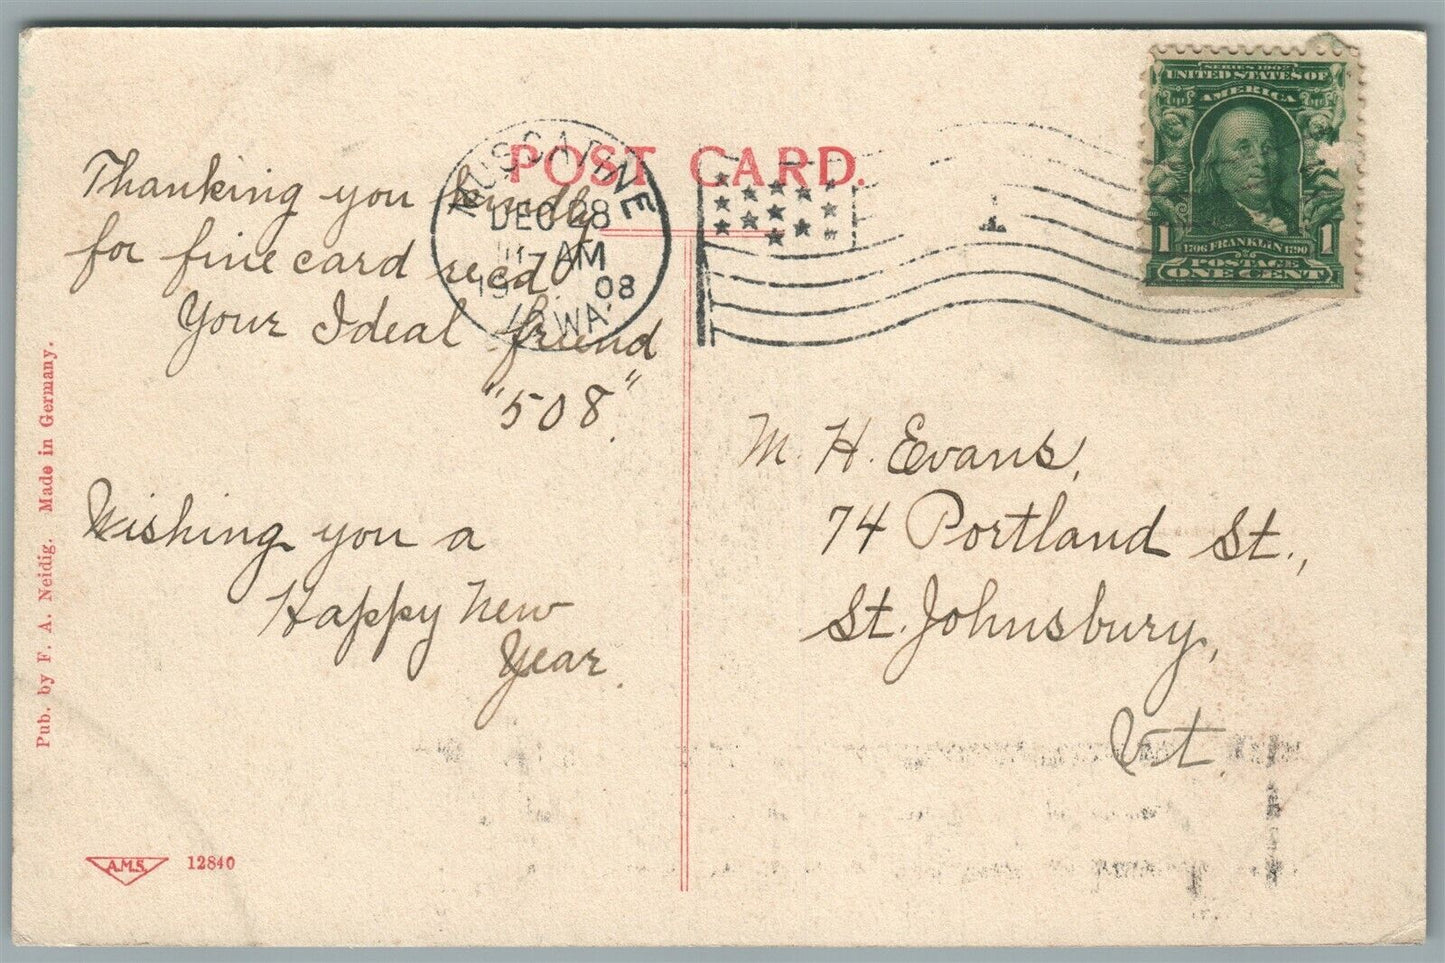 POST CARD.
MUSCATINE
DEC 28
7 AM
1908
IOWA.
SERIES 1902
UNITED STATES OF
AMERICA
1 1706 FRANKLIN 1790 1
POSTAGE
ONE CENT
Thanking you kindly
for fine card rec'd
Your Ideal friend
"508".
Wishing you a
Happy New
Year.
M. H. Evans,
74 Portland St.,
St. Johnsbury,
Vt.
Pub. by F. A. Neidig. Made in Germany.
A.M.S. 12840